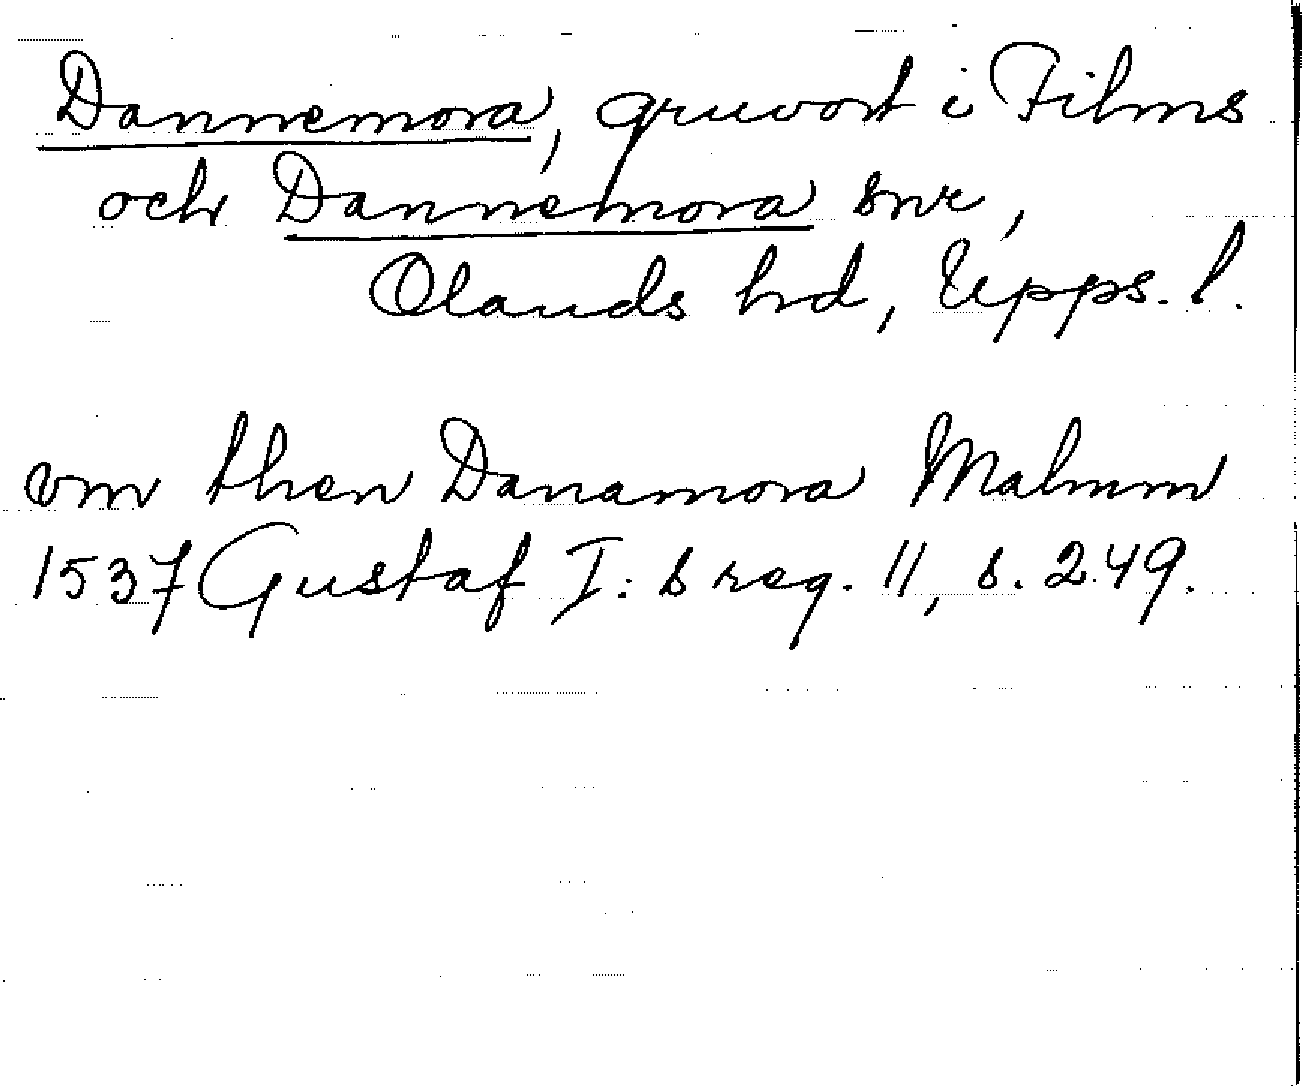 Dannemora, gruvort i Films
och Dannemora snr,
Olands hd, Upps. l.
vm then Danamora Malmm
1537 Gustaf I: s reg. 11, s. 249.